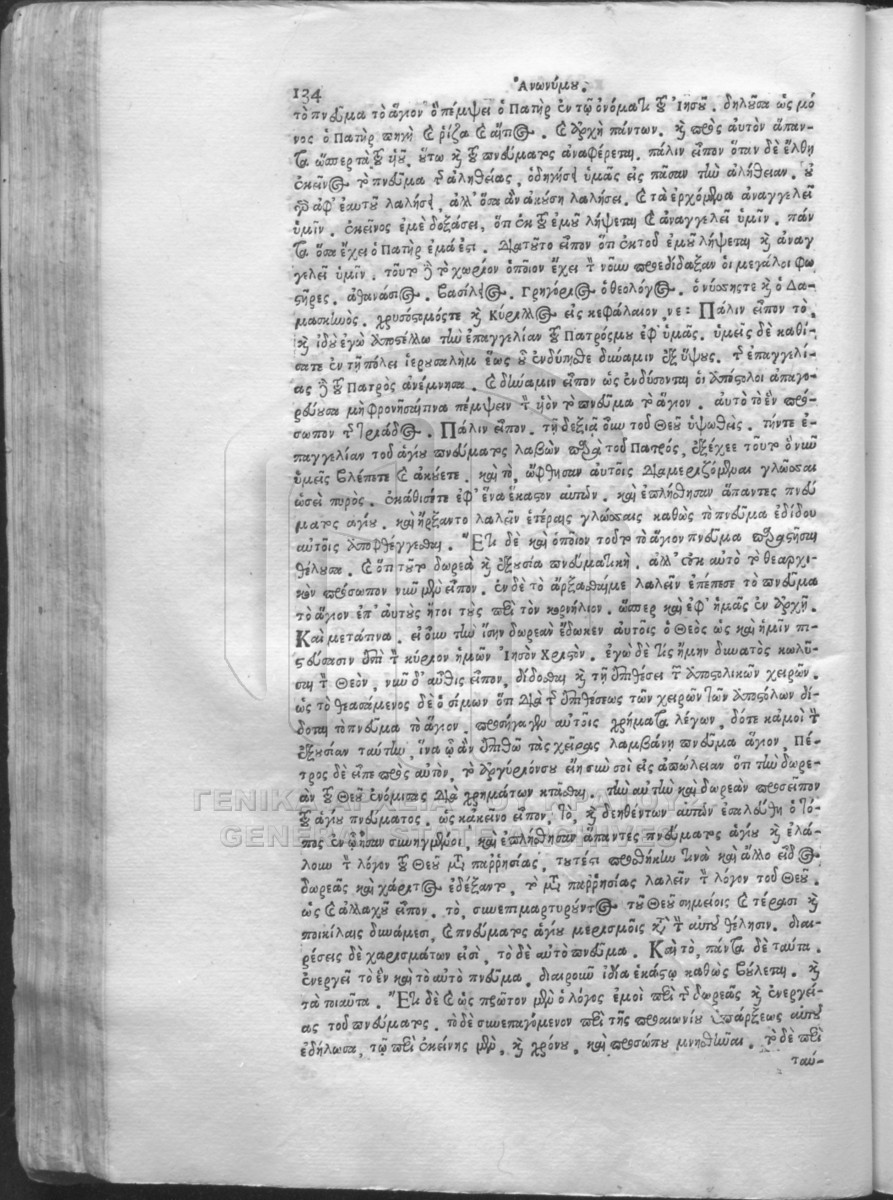 134
Ἀνωνύμου.
τὸ πνεῦμα τὸ ἅγιον ὃ πέμψει ὁ Πατὴρ ἐν τῷ ὀνόματι τοῦ Ἰησοῦ. δηλοῦσα ὡς μό
νος ὁ Πατὴρ πηγὴ καὶ ῥίζα καὶ αἴτιος. καὶ ἀρχὴ πάντων. καὶ πρὸς αὐτὸν ἅπαν-
τα ὥσπερ τὰ τοῦ υἱοῦ, οὕτω καὶ τοῦ πνεύματος ἀναφέρεται. πάλιν εἶπον ὅταν δὲ ἔλθῃ
ἐκεῖνος τὸ πνεῦμα τῆς ἀληθείας, ὁδηγήσει ὑμᾶς εἰς πᾶσαν τὴν ἀλήθειαν. οὐ
γὰρ ἀφ' ἑαυτοῦ λαλήσει, ἀλλ' ὅσα ἂν ἀκούσῃ λαλήσει. καὶ τὰ ἐρχόμενα ἀναγγελεῖ
ὑμῖν. ἐκεῖνος ἐμὲ δοξάσει, ὅτι ἐκ τοῦ ἐμοῦ λήψεται καὶ ἀναγγελεῖ ὑμῖν. πάν
τα ὅσα ἔχει ὁ Πατὴρ ἐμά ἐστι. διατοῦτο εἶπον ὅτι ἐκ τοῦ ἐμοῦ λήψεται καὶ ἀναγ
γελεῖ ὑμῖν. τοῦτο τὸ χωρίον ὁποῖον ἔχει τὸν νοῦν προεδίδαξαν οἱ μεγάλοι φω
στῆρες. ἀθανάσιος. βασίλειος. Γρηγόριος ὁ θεολόγος. ὁ νύσσης τε καὶ ὁ Δα-
μασκηνὸς. χρυσόστομός τε καὶ Κύριλλος εἰς κεφάλαιον νε: Πάλιν εἶπον τὸ.
καὶ ἰδοὺ ἐγὼ ἀποστέλλω τὴν ἐπαγγελίαν τοῦ Πατρός μου ἐφ' ὑμᾶς. ὑμεῖς δὲ καθί-
σατε ἐν τῇ πόλει ἱερουσαλὴμ ἕως οὗ ἐνδύσησθε δύναμιν ἐξ ὕψους. τῆς ἐπαγγελί-
ας τοῦ Πατρὸς ἀνέμνησα. καὶ δύναμιν εἶπον ὡς ἐνδύσονται οἱ ἀπόστολοι ἀπαγο-
ρεύουσα μὴ φρονῆσαί τινα πέμψειν τὸν υἱὸν τὸ πνεῦμα τὸ ἅγιον. αὐτὸ τὸ ἓν πρό-
σωπον τῆς τριάδος. Πάλιν εἶπον. τῇ δεξιᾷ οὖν τοῦ Θεοῦ ὑψωθεὶς. τήν τε ἐ-
παγγελίαν τοῦ ἁγίου πνεύματος λαβὼν παρὰ τοῦ Πατρός, ἐξέχεε τοῦτο ὃ νῦν
ὑμεῖς βλέπετε καὶ ἀκούετε. καὶ τὸ, ὤφθησαν αὐτοῖς διαμεριζόμεναι γλῶσσαι
ὡσεὶ πυρὸς. ἐκάθισέ τε ἐφ' ἕνα ἕκαστον αὐτῶν. καὶ ἐπλήσθησαν ἅπαντες πνεύ
ματος ἁγίου. καὶ ἤρξαντο λαλεῖν ἑτέραις γλώσσαις καθὼς τὸ πνεῦμα ἐδίδου
αὐτοῖς ἀποφθέγγεσθαι. Ἔτι δὲ καὶ ὁποῖον τοῦτο τὸ ἅγιον πνεῦμα παραστῆσαι
θέλουσα. καὶ ὅτι τοῦτο δωρεὰ καὶ ἐξουσία πνευματικὴ. ἀλλ' οὐκ αὐτὸ τὸ θεαρχι-
κὸν πρόσωπον νῦν μὲν εἶπον. ἐν δὲ τὸ ἄρξασθαί με λαλεῖν ἐπέπεσε τὸ πνεῦμα
τὸ ἅγιον ἐπ' αὐτοὺς ἤτοι τοὺς περὶ τὸν κορνήλιον. ὥσπερ καὶ ἐφ' ἡμᾶς ἐν ἀρχῇ.
Καὶ μετά τινα. εἰ οὖν τὴν ἴσην δωρεὰν ἔδωκεν αὐτοῖς ὁ Θεὸς ὡς καὶ ἡμῖν πι-
στεύσασιν ἐπὶ τὸν κύριον ἡμῶν Ἰησὸν Χριστὸν. ἐγὼ δὲ τίς ἤμην δυνατὸς κωλῦ-
σαι τὸν Θεὸν, νῦν δ' αὖθις εἶπον, δίδοσθαι καὶ τῇ ἐπιθέσει τῶν ἀποστολικῶν χειρῶν.
ὡς τὸ θεασάμενος δὲ ὁ σίμων ὅτι διὰ τῆς ἐπιθέσεως τῶν χειρῶν τῶν ἀποστόλων δί-
δοται τὸ πνεῦμα τὸ ἅγιον. προσήγαγεν αὐτοῖς χρήματα λέγων, δότε κἀμοὶ τὴν
ἐξουσίαν ταύτην, ἵνα ᾧ ἂν ἐπιθῶ τὰς χεῖρας λαμβάνῃ πνεῦμα ἅγιον, Πέ-
τρος δὲ εἶπε πρὸς αὐτὸν, τὸ ἀργύριόν σου εἴη σὺν σοὶ εἰς ἀπώλειαν ὅτι τὴν δωρε-
ὰν τοῦ Θεοῦ ἐνόμισας διὰ χρημάτων κτᾶσθαι. τὴν αὐτὴν καὶ δωρεὰν προσεῖπον
τοῦ ἁγίου πνεύματος. ὡς κἀκεῖνο εἶπον, τὸ, καὶ δεηθέντων αὐτῶν ἐσαλεύθη ὁ τό-
πος ἐν ᾧ ἦσαν συνηγμένοι, καὶ ἐπλήσθησαν ἅπαντες πνεύματος ἁγίου καὶ ἐλά-
λουν τὸν λόγον τοῦ Θεοῦ μετὰ παρρησίας, τουτέστι προσθήκην τινὰ καὶ ἄλλο εἶδος
δωρεᾶς καὶ χάριτος ἐδέξαντο, τὸ μετὰ παρρησίας λαλεῖν τὸν λόγον τοῦ Θεοῦ.
ὡς καὶ ἀλλαχοῦ εἶπον. τὸ, συνεπιμαρτυροῦντος τοῦ Θεοῦ σημείοις καὶ τέρασι καὶ
ποικίλαις δυνάμεσι, καὶ πνεύματος ἁγίου μερισμοῖς κατὰ τὴν αὐτοῦ θέλησιν. διαι-
ρέσεις δὲ χαρισμάτων εἰσί, τὸ δὲ αὐτὸ πνεῦμα. Καὶ τὸ, πάντα δὲ ταῦτα.
ἐνεργεῖ τὸ ἓν καὶ τὸ αὐτὸ πνεῦμα, διαιροῦν ἰδίᾳ ἑκάστῳ καθὼς βούλεται. καὶ
τὰ τοιαῦτα. Ἔτι δὲ καὶ ὡς πρῶτον μὲν ὁ λόγος ἐμοὶ περὶ τῆς δωρεᾶς καὶ ἐνεργεί-
ας τοῦ πνεύματος. τὸ δὲ συνεπαγόμενον περὶ τῆς προαιωνίου ὑπάρξεως αὐτοῦ
ἐδήλωσα, τῷ περὶ ἐκείνης μὲν, καὶ χρόνου, καὶ προσώπου μνησθῆναι. τὸ δὲ περὶ
ταύ-
ΓΕΝΙΚΑ ΑΡΧΕΙΑ ΤΟΥ ΚΡΑΤΟΥΣ
GENERAL STATE ARCHIVES